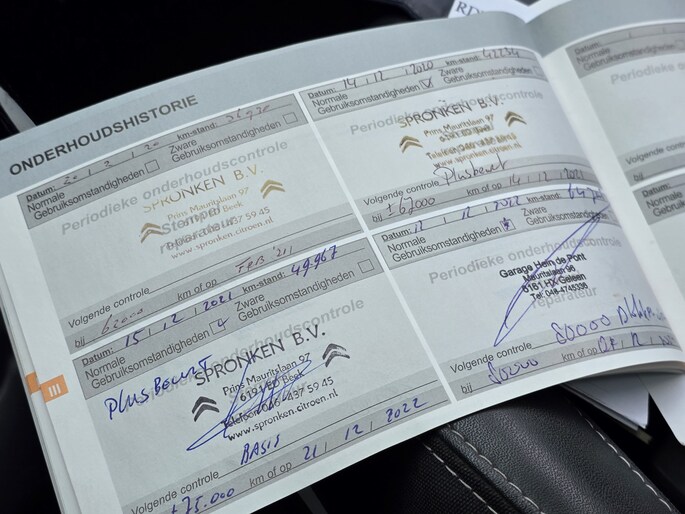 ONDERHOUDSHISTORIE
Datum: 20 / 3 / 20 km-stand:
Normale Zware
Gebruiksomstandigheden Gebruiksomstandigheden
Periodieke onderhoudscontrole
SPRONKEN B.V.
Prins Mauritslaan 97
Stempel
Beek
reparateur
437 59 45
www.spronken.citroen.nl
Volgende controle
bij 62000 km of op FEB '21
Datum: 15 / 12 / 2021 km-stand: 49.967
Normale Zware
Gebruiksomstandigheden Gebruiksomstandigheden
Periodieke onderhoudscontrole
Plus Beurt
SPRONKEN B.V.
Prins Mauritslaan 97
6191 ED Beek
Telefoon 046-437 59 45
www.spronken.citroen.nl
BASIS
Volgende controle
±75.000 km of op 21 / 12 / 2022
Datum: 14 / 12 / 2020 km-stand:
Normale Zware
Gebruiksomstandigheden Gebruiksomstandigheden
Periodieke onderhoudscontrole
SPRONKEN B.V.
Prins Mauritslaan 97
www.spronken.citroen.nl
Plusbeurt
Volgende controle
bij ±62000 km of op 14 / 12 / 2021
Datum: 12 / 12 / 2022 km-stand:
Normale Zware
Gebruiksomstandigheden Gebruiksomstandigheden
Periodieke onderhoudscontrole
Garage Hein de Pont
Mauritslaan 96
6161 HX Geleen
Tel: 046-4745336
reparateur
80000
Volgende controle
bij 80000 km of op
III
Periodieke
Periodieke